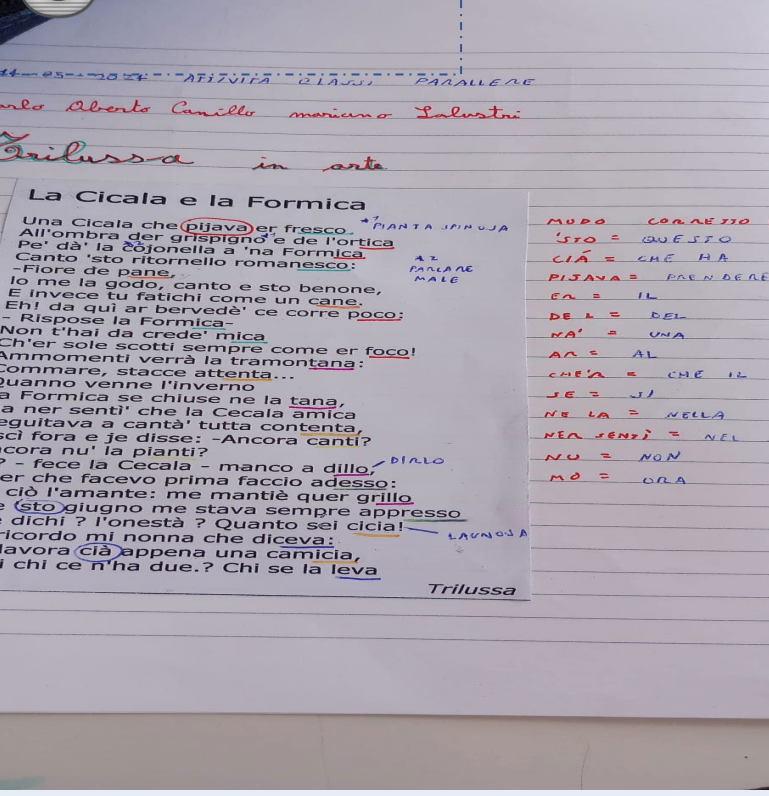 ATTIVITA CLASSI PARALLELE
Alberto Camillo mariano Salustri
Trilussa in arte
La Cicala e la Formica
Una Cicala che pijava er fresco *1 PIANTA SPINOSA
All'ombra der grispigno e de l'ortica
Pe' dà' la cojonella a 'na Formica
Canto 'sto ritornello romanesco: *2 PARLARE MALE
-Fiore de pane,
Io me la godo, canto e sto benone,
E invece tu fatichi come un cane.
Eh! da quì ar bervedè' ce corre poco:
- Rispose la Formica-
Non t'hai da crede' mica
Ch'er sole scotti sempre come er foco!
Ammomenti verrà la tramontana:
Commare, stacce attenta...
Quanno venne l'inverno
a Formica se chiuse ne la tana,
a ner sentì' che la Cecala amica
eguitava a cantà' tutta contenta,
scì fora e je disse: -Ancora canti?
cora nu' la pianti?
? - fece la Cecala - manco a dillo, DIRLO
er che facevo prima faccio adesso:
ciò l'amante: me mantiè quer grillo
e 'sto giugno me stava sempre appresso
dichi ? l'onestà ? Quanto sei cicia! LAGNOSA
ricordo mi nonna che diceva:
lavora cià appena una camicia,
i chi ce n'ha due.? Chi se la leva
Trilussa
MODO CORRETTO
'STO = QUESTO
CIÁ = CHE HA
PIJAVA = PRENDERE
ER = IL
DE L = DEL
NA' = UNA
AR = AL
CHE'R = CHE IL
SE = SI
NE LA = NELLA
NER SENTÌ = NEL
NU = NON
MO = ORA